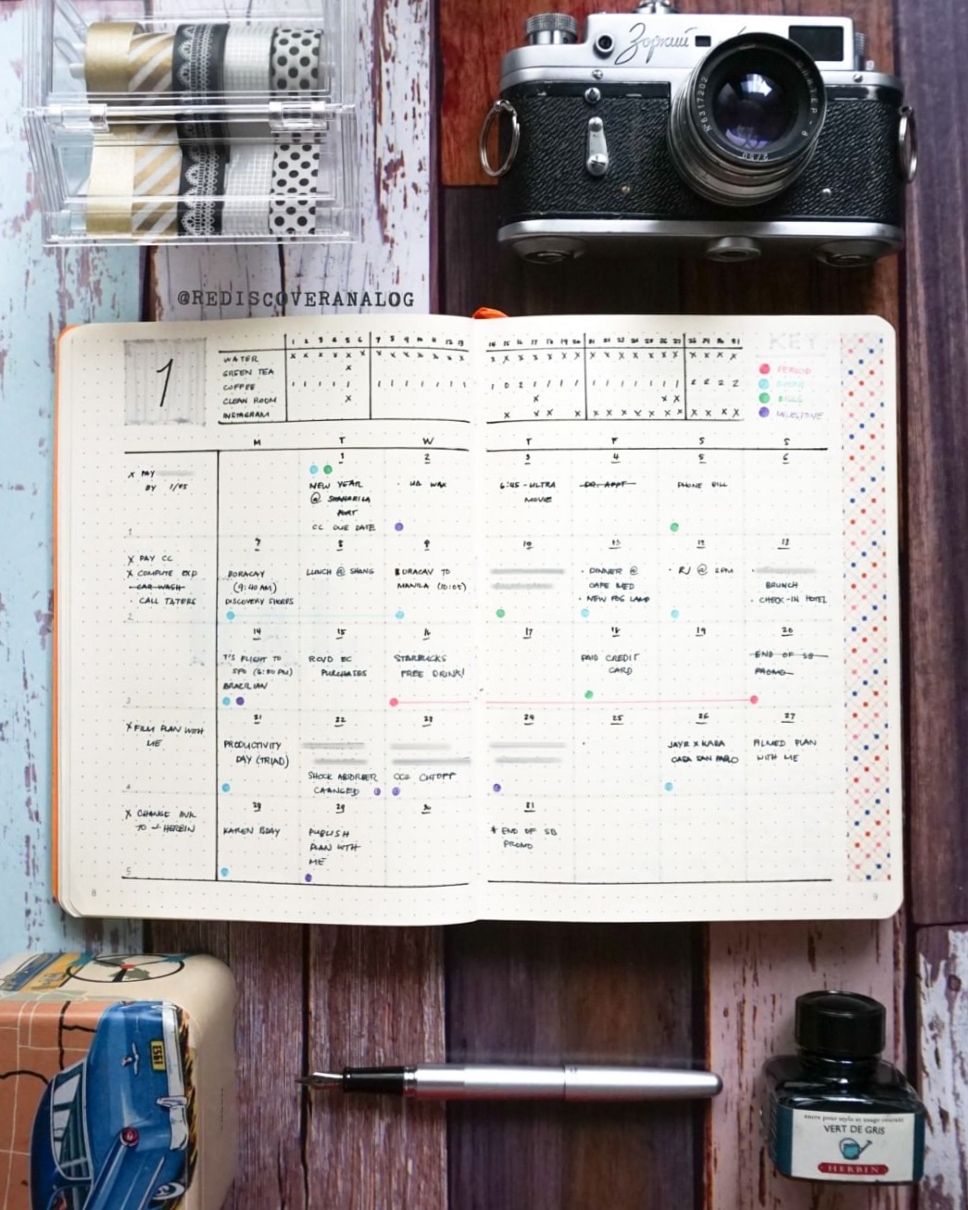 Зоркий
@REDISCOVERANALOG
1
1 2 3 4 5 6 7 8 9 10 11 12 13 14 15 16 17 18 19 20 21 22 23 24 25 26 27 28 29 30 31
WATER
GREEN TEA
COFFEE
CLEAN ROOM
INSTAGRAM
KEY
PERIOD
BILLS
M T W T F S S
1 2 3 4 5 6
X PAY
BY 1/25
NEW YEAR
@ SHANGRILA
FORT
CC DUE DATE
WAX
6:45 - ULTRA
MOVIE
DR. APPT
PHONE BILL
1
7 8 9 10 11 12 13
X PAY CC
X COMPUTE EXP
CAR WASH
· CALL TATERS
BORACAY
(9:40 AM)
DISCOVERY SHORES
LUNCH @ SHANG
BORACAY TO
MANILA (10:05)
· DINNER @
CAFE MED
· NEW FOG LAMP
· RJ @ 2PM
BRUNCH
· CHECK-IN HOTEL
2
14 15 16 17 18 19 20
T'S FLIGHT TO
SFO
BRAZILIAN
RCVD BC
PURCHASES
STARBUCKS
FREE DRINK!
PAID CREDIT
CARD
END OF SB
PROMO
3
21 22 23 24 25 26 27
X FILM PLAN WITH
ME
PRODUCTIVITY
DAY (TRIAD)
SHOCK ABSORBER
CHANGED
CUTOFF
JAYR X KARA
CASA SAN PABLO
FILMED PLAN
WITH ME
4
29 31
X CHANGE INK
TO J. HERBIN
KAREN BDAY
PUBLISH
PLAN WITH
ME
* END OF SB
PROMO
5
8
9
VERT DE GRIS
HERBIN